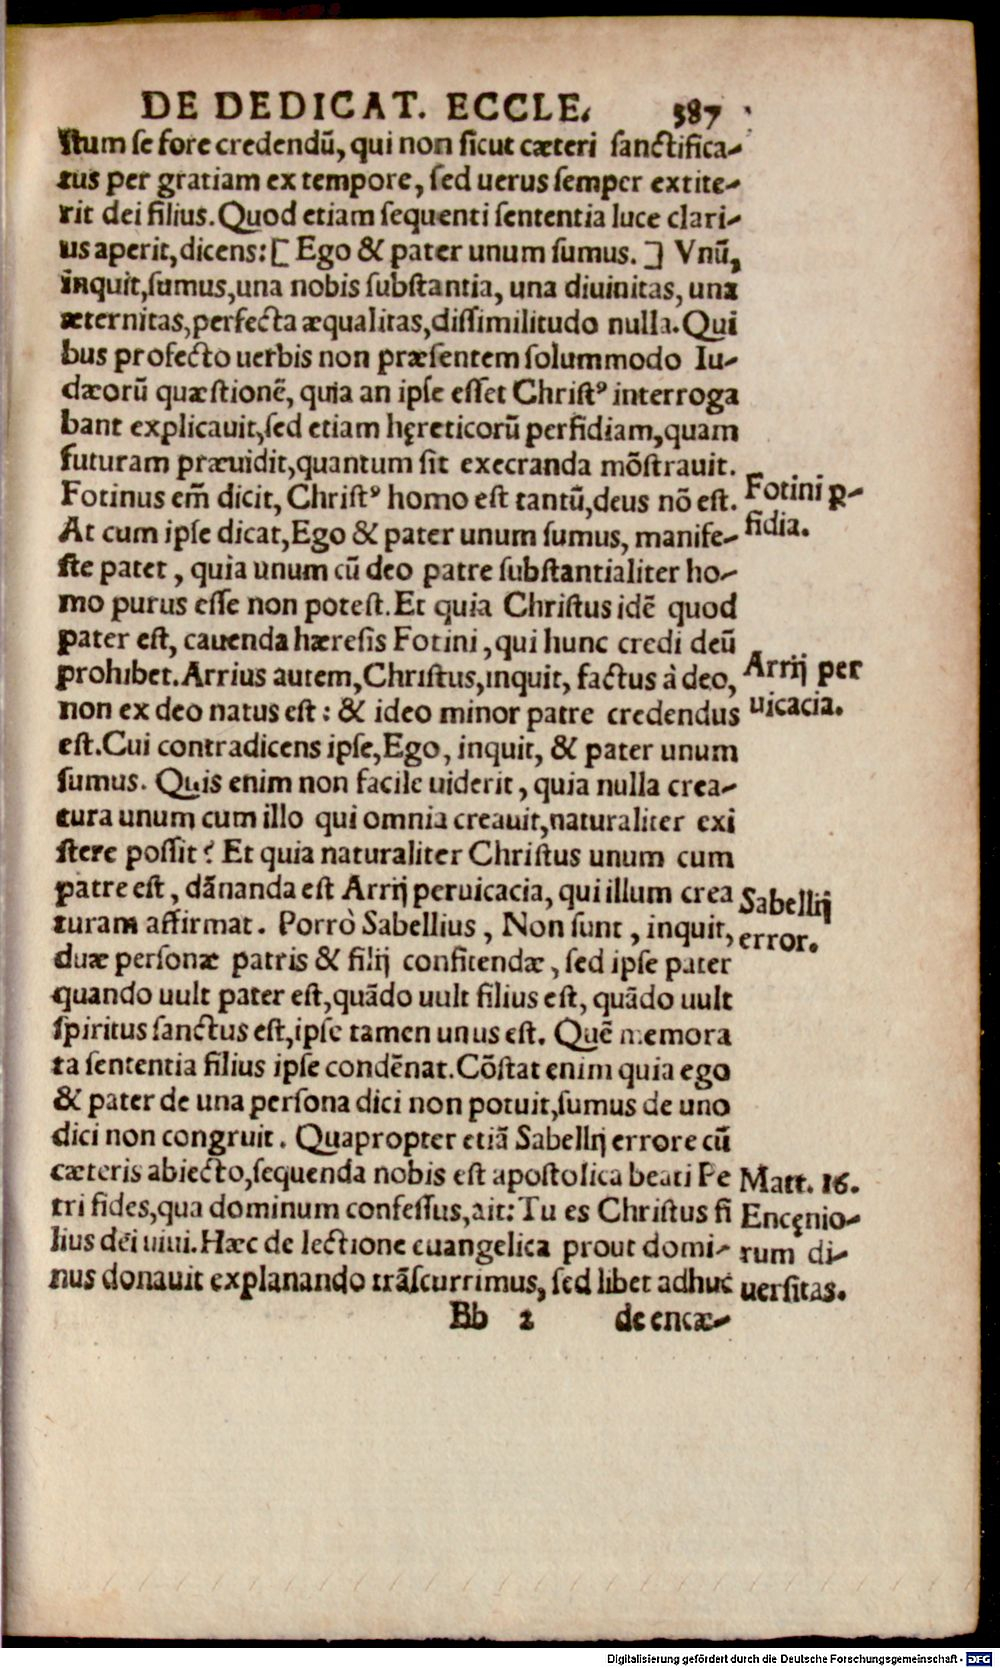 DE DEDICAT. ECCLE. 387
stum se fore credendū, qui non sicut cæteri sanctifica-
tus per gratiam ex tempore, sed uerus semper extite-
rit dei filius. Quod etiam sequenti sententia luce clari-
us aperit, dicens: [ Ego & pater unum sumus. ] Vnū,
inquit, sumus, una nobis substantia, una diuinitas, una
æternitas, perfecta æqualitas, dissimilitudo nulla. Qui
bus profecto uerbis non præsentem solummodo Iu-
dæorū quæstionē, quia an ipse esset Christꝰ interroga
bant explicauit, sed etiam hęreticorū perfidiam, quam
futuram præuidit, quantum sit execranda mōstrauit.
Fotinus em̄ dicit, Christꝰ homo est tantū, deus nō est.
Fotini ꝑ-
At cum ipse dicat, Ego & pater unum sumus, manife-
fidia.
ste patet, quia unum cū deo patre substantialiter ho-
mo purus esse non potest. Et quia Christus idē quod
pater est, cauenda hæresis Fotini, qui hunc credi deū
prohibet. Arrius autem, Christus, inquit, factus à deo,
Arrij per
non ex deo natus est: & ideo minor patre credendus
uicacia.
est. Cui contradicens ipse, Ego, inquit, & pater unum
sumus. Quis enim non facile uiderit, quia nulla crea-
tura unum cum illo qui omnia creauit, naturaliter exi
stere possit? Et quia naturaliter Christus unum cum
patre est, dānanda est Arrij peruicacia, qui illum crea
Sabellij
turam affirmat. Porrò Sabellius, Non sunt, inquit,
error.
duæ personæ patris & filij confitendæ, sed ipse pater
quando uult pater est, quādo uult filius est, quādo uult
spiritus sanctus est, ipse tamen unus est. Quē memora
ta sententia filius ipse condēnat. Cōstat enim quia ego
& pater de una persona dici non potuit, sumus de uno
dici non congruit. Quapropter etiā Sabellij errore cū
cæteris abiecto, sequenda nobis est apostolica beati Pe
Matt. 16.
tri fides, qua dominum confessus, ait: Tu es Christus fi
Encęnio-
lius dei uiui. Hæc de lectione euangelica prout domi-
rum di-
nus donauit explanando trāscurrimus, sed libet adhuc
uersitas.
Bb 2 de encæ-
Digitalisierung gefördert durch die Deutsche Forschungsgemeinschaft - DFG